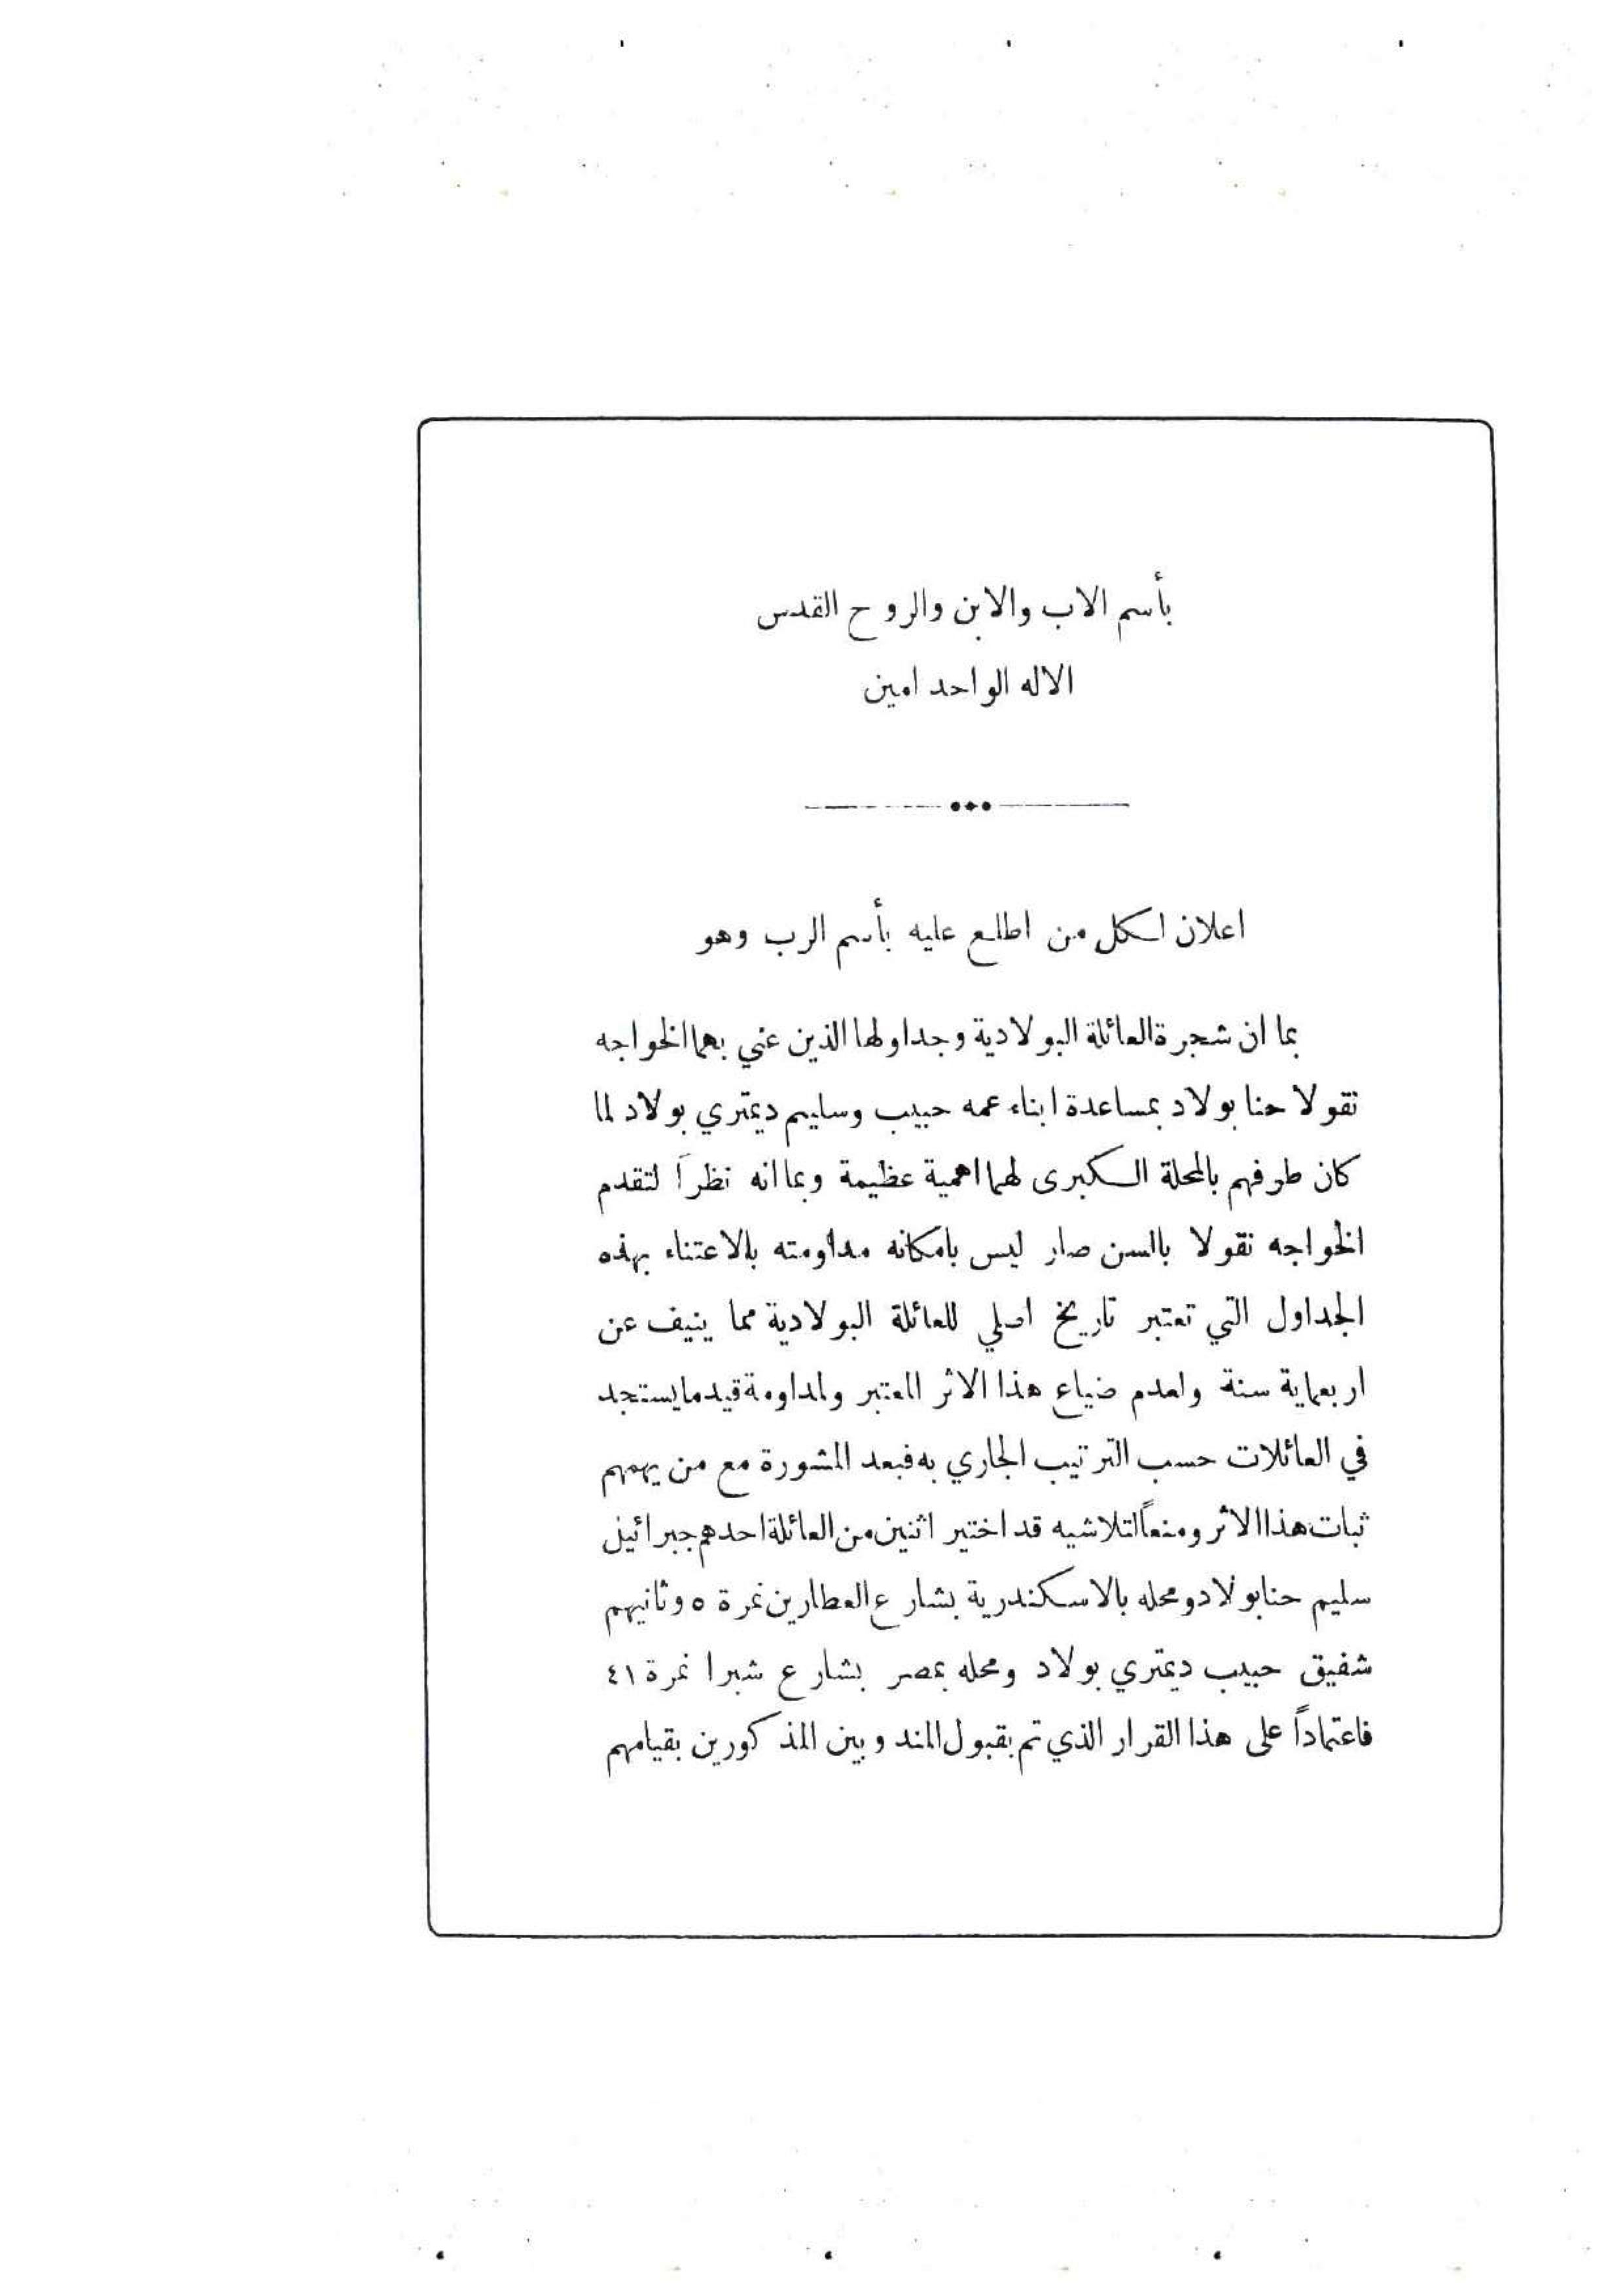 بأسم الاب والابن والروح القدس
الاله الواحد امين
اعلان لكل من اطلع عليه بأسم الرب وهو
بما ان شجرة العائلة البولادية وجداولها الذين عني بهما الخواجه
نقولا حنا بولاد بمساعدة ابناء عمه حبيب وسليم ديمتري بولاد لما
كان طرفهم بالمحلة الكبرى لهما اهمية عظيمة وبما انه نظراً لتقدم
الخواجه نقولا بالسن صار ليس بامكانه مداومته بالاعتناء بهذه
الجداول التي تعتبر تاريخ اصلي للعائلة البولادية مما ينيف عن
اربعماية سنة ولعدم ضياع هذا الاثر المعتبر ولمداومة قيد ما يستجد
في العائلات حسب الترتيب الجاري به فبعد المشورة مع من يهمهم
ثبات هذا الاثر ومنعاً لتلاشيه قد اختير اثنين من العائلة احدهم جبرائيل
سليم حنا بولاد ومحله بالاسكندرية بشارع العطارين نمرة ٥ وثانيهم
شفيق حبيب ديمتري بولاد ومحله بمصر بشارع شبرا نمرة ٤١
فاعتماداً على هذا القرار الذي تم بقبول المندوبين المذكورين بقيامهم